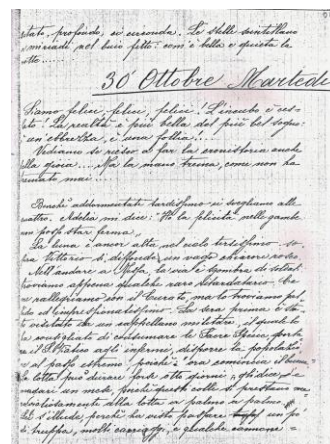 profondo, ci circonda. Le stelle scintillano
a miriadi nel buio fitto: com'è bella e quieta la
notte....
30 Ottobre Martedì
Siamo felici, felici, felici! L'incubo è ces-
sato! La realtà è più bella del più bel sogno:
un'ebbrezza, è una follia!...
Vediamo se riesco a far la cronistoria anche
della gioia.... Ma la mano trema, come non ha
tremato mai....
Benché addormentate tardissimo ci svegliamo alle
quattro. Adelia mi dice: "Ho la felicità nelle gambe
non posso star ferma„
La luna è ancor alta nel cielo tersissimo so-
pra Vittorio si diffonde un vago chiarore roseo.
Nell'andare a Messa, la via è sgombra di soldati
troviamo appena qualche raro ritardatario. Ci
rallegriamo con il Curato, ma lo troviamo pal-
lido ed impressionatissimo. La sera prima è sta-
to visitato da un cappellano militare, il quale lo
ha consigliato di consumare le Sacre Specie, porta-
re il Viatico agli infermi, disporre la popolazio-
ne al passo estremo, poiché ora comincia il
lotta può durare sette otto giorni, gli dice, e
andare un mese, poiché questi colli si prestano
alla lotta a palmo a palmo
s'illude, perché ha visto passare un po'
di truppa, molti carriaggi, e qualche cannone